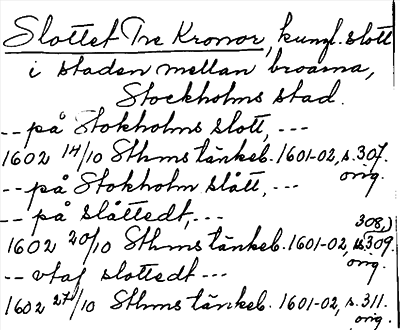 Slottet Tre Kronor, kungl. slott
i staden mellan broarna,
Stockholms stad.
-- på Stokholms slott, ---
1602 14/10 Sthms tänkeb. 1601-02, s. 307.
orig.
-- på Stokholm slått, ---
-- på slåttedt, ---
308,)
1602 20/10 Sthms tänkeb. 1601-02, s. 309.
orig.
-- vtaf slottedt ---
1602 27/10 Sthms tänkeb. 1601-02, s. 311.
orig.